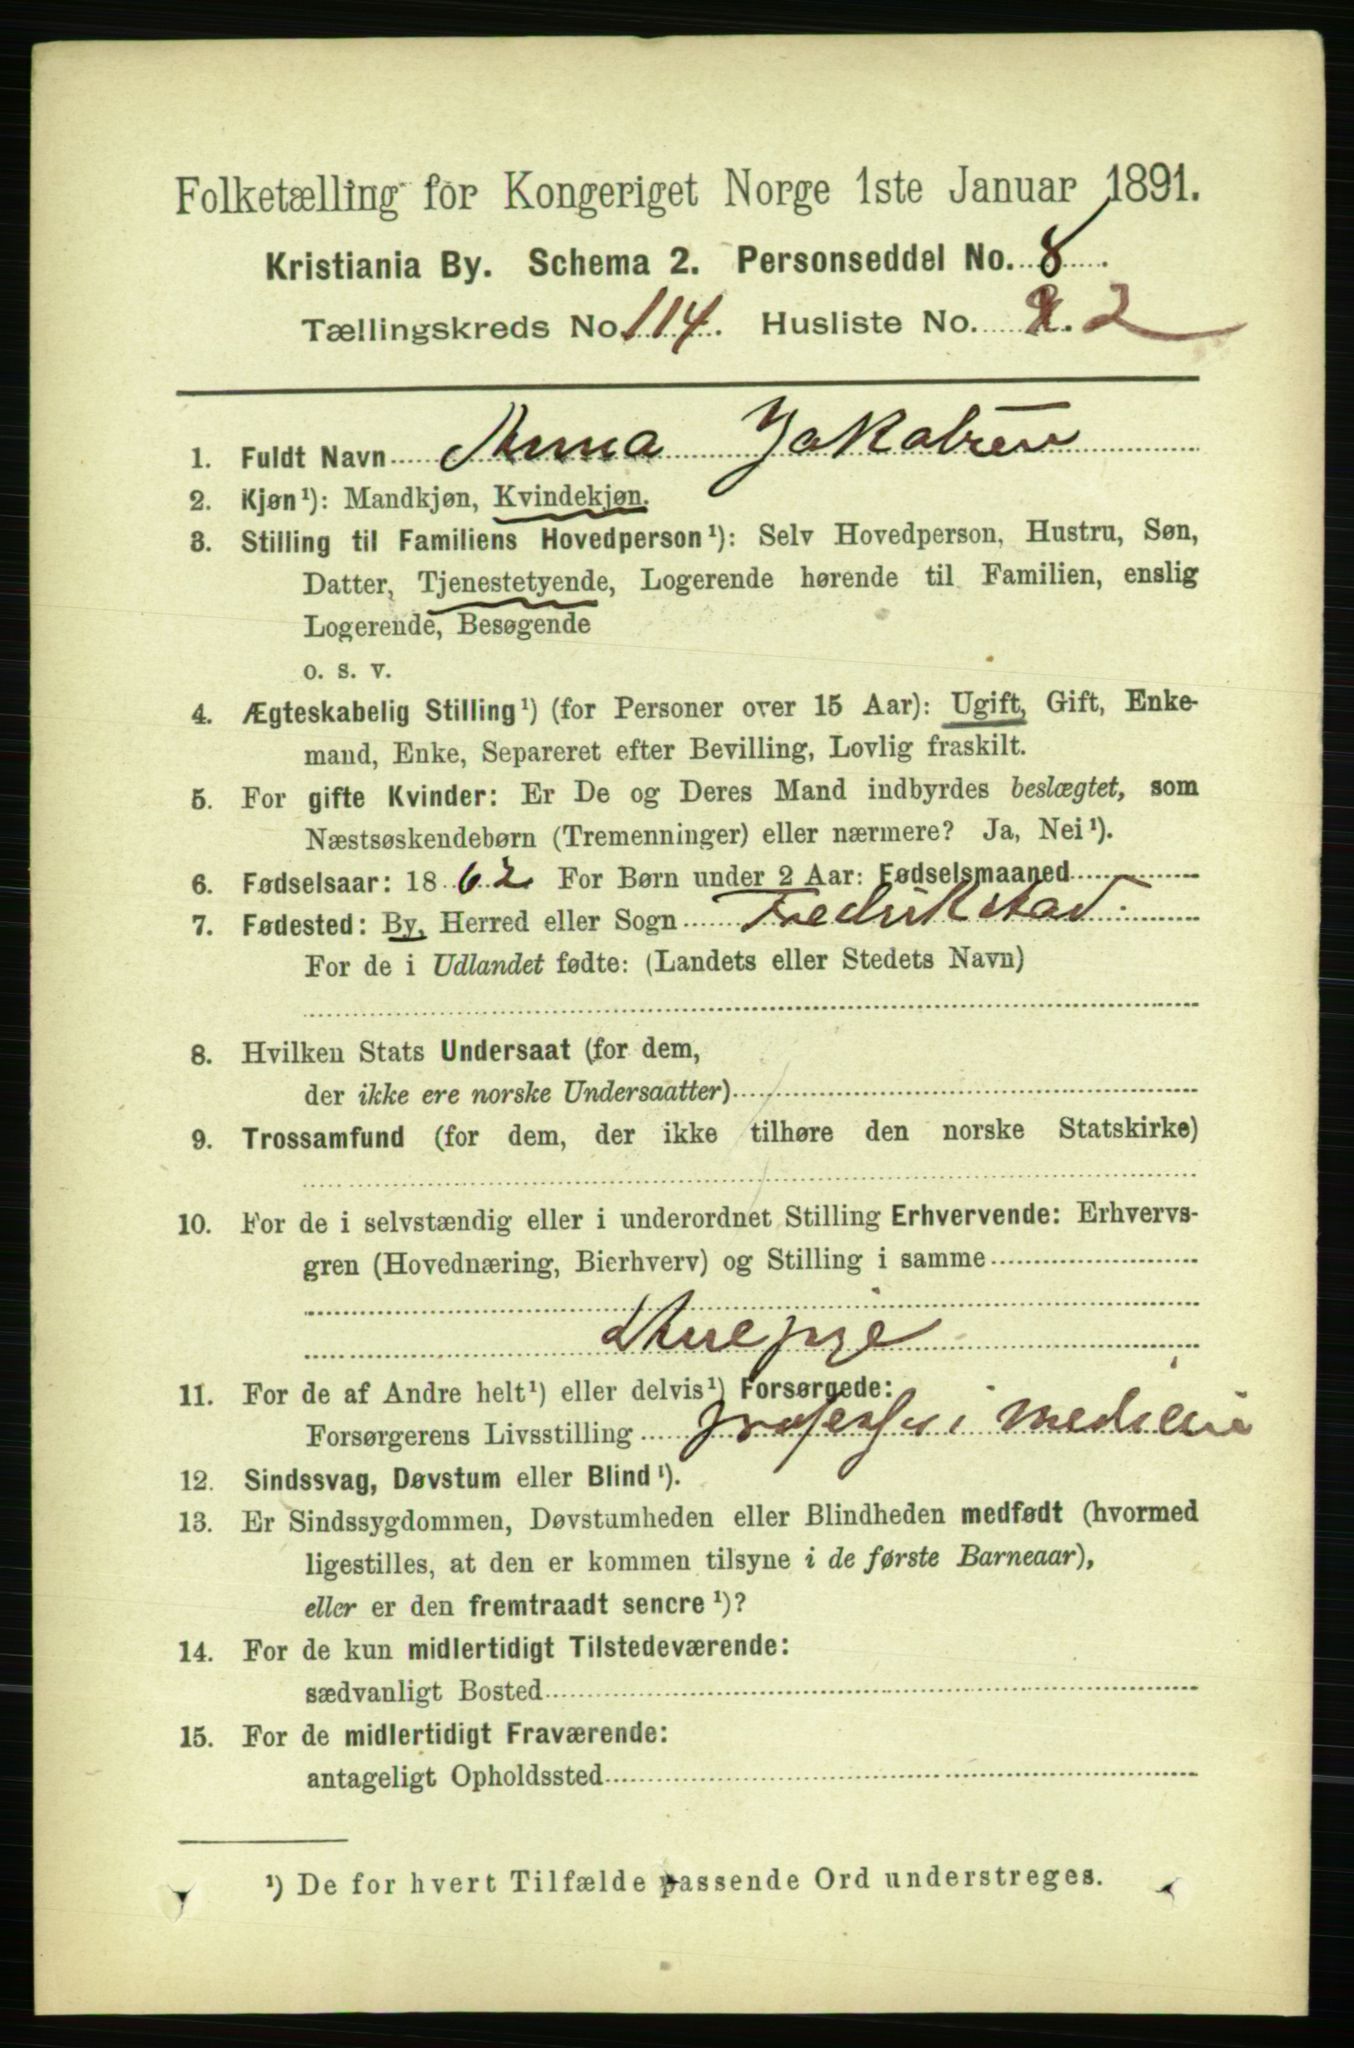 Folketælling for Kongeriget Norge 1ste Januar 1891.
Kristiania By. Schema 2. Personseddel No. 8.
Tællingskreds No. 114. Husliste No. 2
1. Fuldt Navn Anna Jakobsen
2. Kjøn¹): Mandkjøn, Kvindekjøn.
3. Stilling til Familiens Hovedperson¹): Selv Hovedperson, Hustru, Søn,
Datter, Tjenestetyende, Logerende hørende til Familien, enslig
Logerende, Besøgende
o. s. v.
4. Ægteskabelig Stilling¹) (for Personer over 15 Aar): Ugift, Gift, Enke-
mand, Enke, Separeret efter Bevilling, Lovlig fraskilt.
5. For gifte Kvinder: Er De og Deres Mand indbyrdes beslægtet, som
Næstsøskendebørn (Tremenninger) eller nærmere? Ja, Nei¹).
6. Fødselsaar: 1862 For Børn under 2 Aar: Fødselsmaaned
7. Fødested: By, Herred eller Sogn Fredrikstad.
For de i Udlandet fødte: (Landets eller Stedets Navn)
8. Hvilken Stats Undersaat (for dem,
der ikke ere norske Undersaatter)
9. Trossamfund (for dem, der ikke tilhøre den norske Statskirke)
10. For de i selvstændig eller i underordnet Stilling Erhvervende: Erhvervs-
gren (Hovednæring, Bierhverv) og Stilling i samme
Stuepige
11. For de af Andre helt¹) eller delvis¹) Forsørgede:
Forsørgerens Livsstilling professor i medicin
12. Sindssvag, Døvstum eller Blind¹).
13. Er Sindssygdommen, Døvstumheden eller Blindheden medfødt (hvormed
ligestilles, at den er kommen tilsyne i de første Barneaar),
eller er den fremtraadt sencre¹)?
14. For de kun midlertidigt Tilstedeværende:
sædvanligt Bosted
15. For de midlertidigt Fraværende:
antageligt Opholdssted
¹) De for hvert Tilfælde passende Ord understreges.